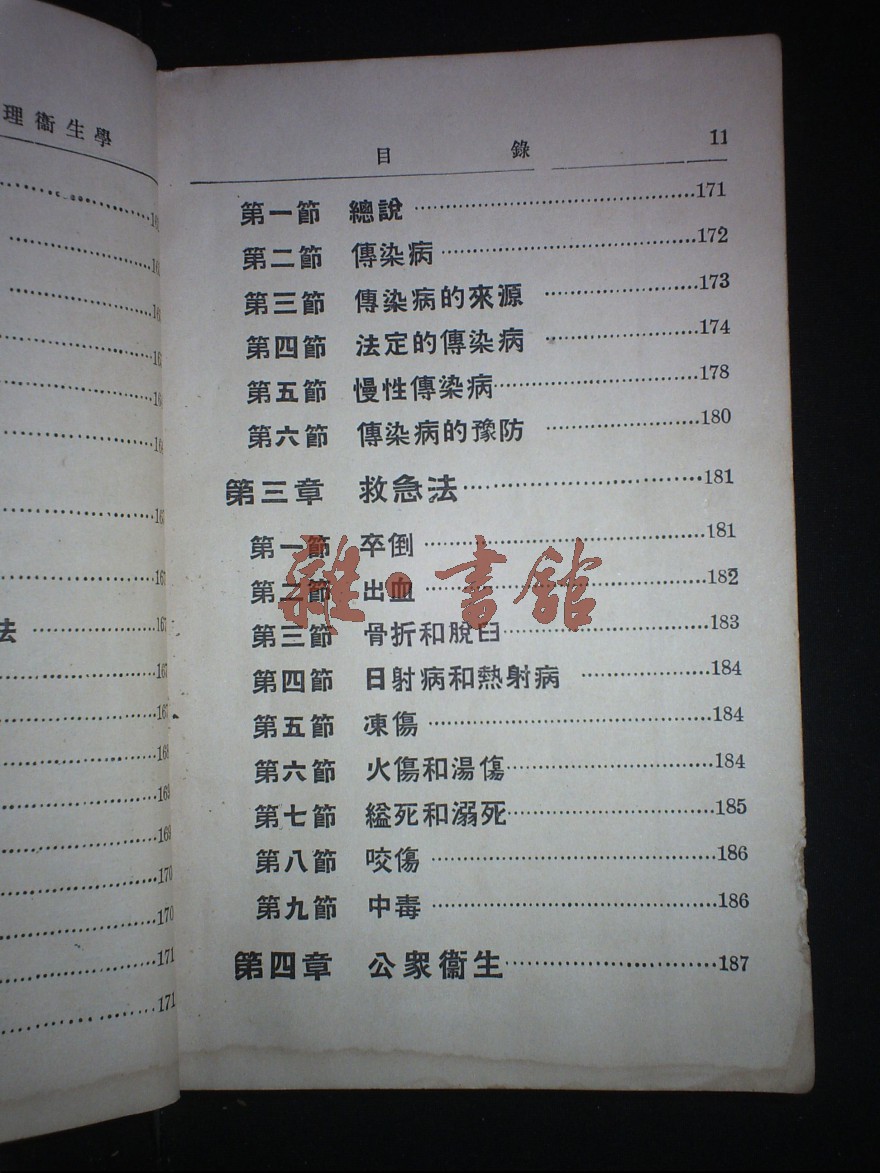 理衞生學
法
167
167
167
168
169
169
170
170
171
171
目 錄 11
第一節 總說 171
第二節 傳染病 172
第三節 傳染病的來源 173
第四節 法定的傳染病 174
第五節 慢性傳染病 178
第六節 傳染病的豫防 180
第三章 救急法 181
第一節 卒倒 181
第二節 出血 182
第三節 骨折和脫臼 183
第四節 日射病和熱射病 184
第五節 凍傷 184
第六節 火傷和湯傷 184
第七節 縊死和溺死 185
第八節 咬傷 186
第九節 中毒 186
第四章 公衆衞生 187
雜·書館